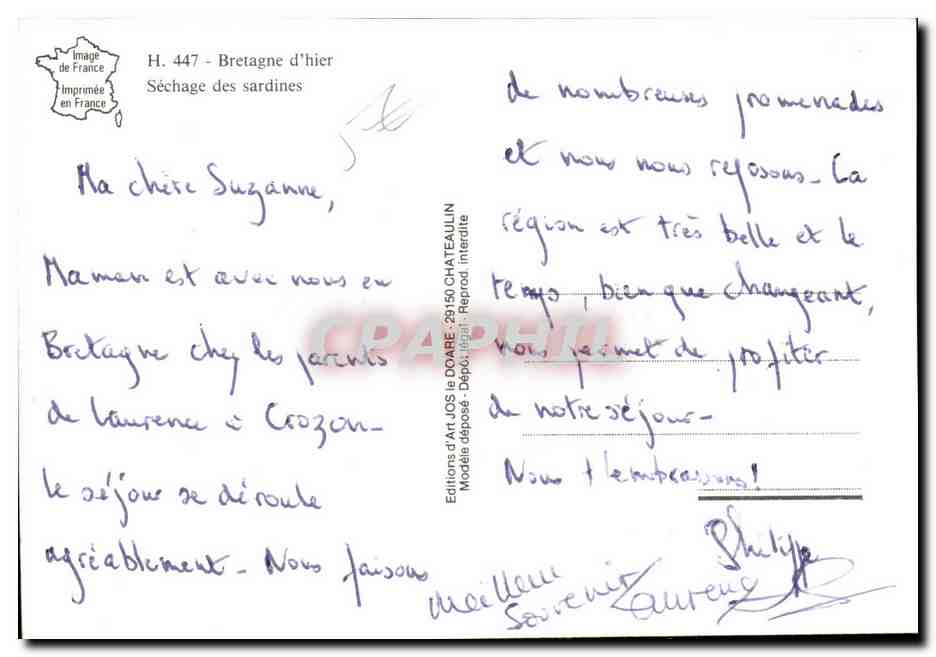 Image
de France
Imprimée
en France
H. 447 - Bretagne d'hier
Séchage des sardines
Ma chère Suzanne,
Maman est avec nous en
Bretagne chez les parents
de Laurence à Crozon_
le séjour se déroule
agréablement_ Nous faisons
Editions d'Art JOS le DOARE - 29150 CHATEAULIN
Modèle déposé - Dépôt légal - Reprod. interdite
CPAPHIL
de nombreuses promenades
et nous nous reposons_ La
région est très belle et le
temps, bien que changeant,
nous permet de profiter
de notre séjour_
Nous t'embrassons!
Philippe
Meilleur
Souvenir
Laurence